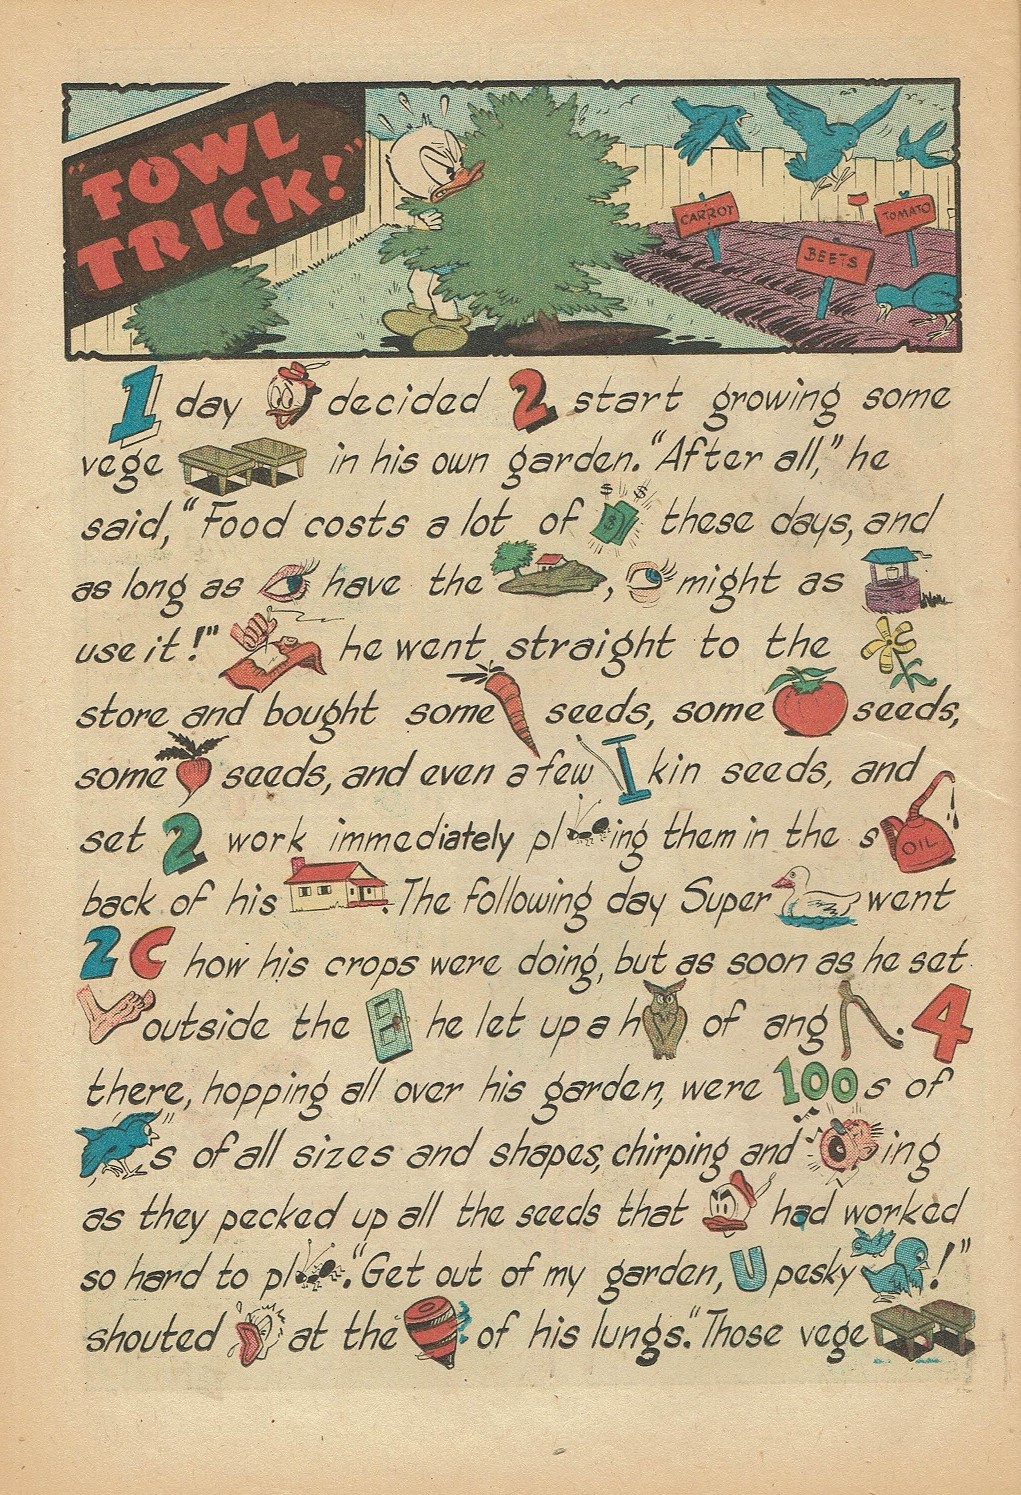 "FOWL
TRICK!"
CARROT
BEETS
TOMATO
1 day decided 2 start growing some
vege in his own garden. "After all," he
said, "Food costs a lot of $ $ $ these days, and
as long as have the , might as
use it!" he went straight to the
store and bought some seeds, some seeds,
some seeds, and even a few kin seeds, and
set 2 work immediately pl ing them in the s OIL
back of his . The following day Super went
2 C how his crops were doing, but as soon as he set
outside the he let up a h of ang . 4
there, hopping all over his garden, were 100s of
s of all sizes and shapes, chirping and ing
as they pecked up all the seeds that had worked
so hard to pl . "Get out of my garden, U pesky !"
shouted at the of his lungs. "Those vege